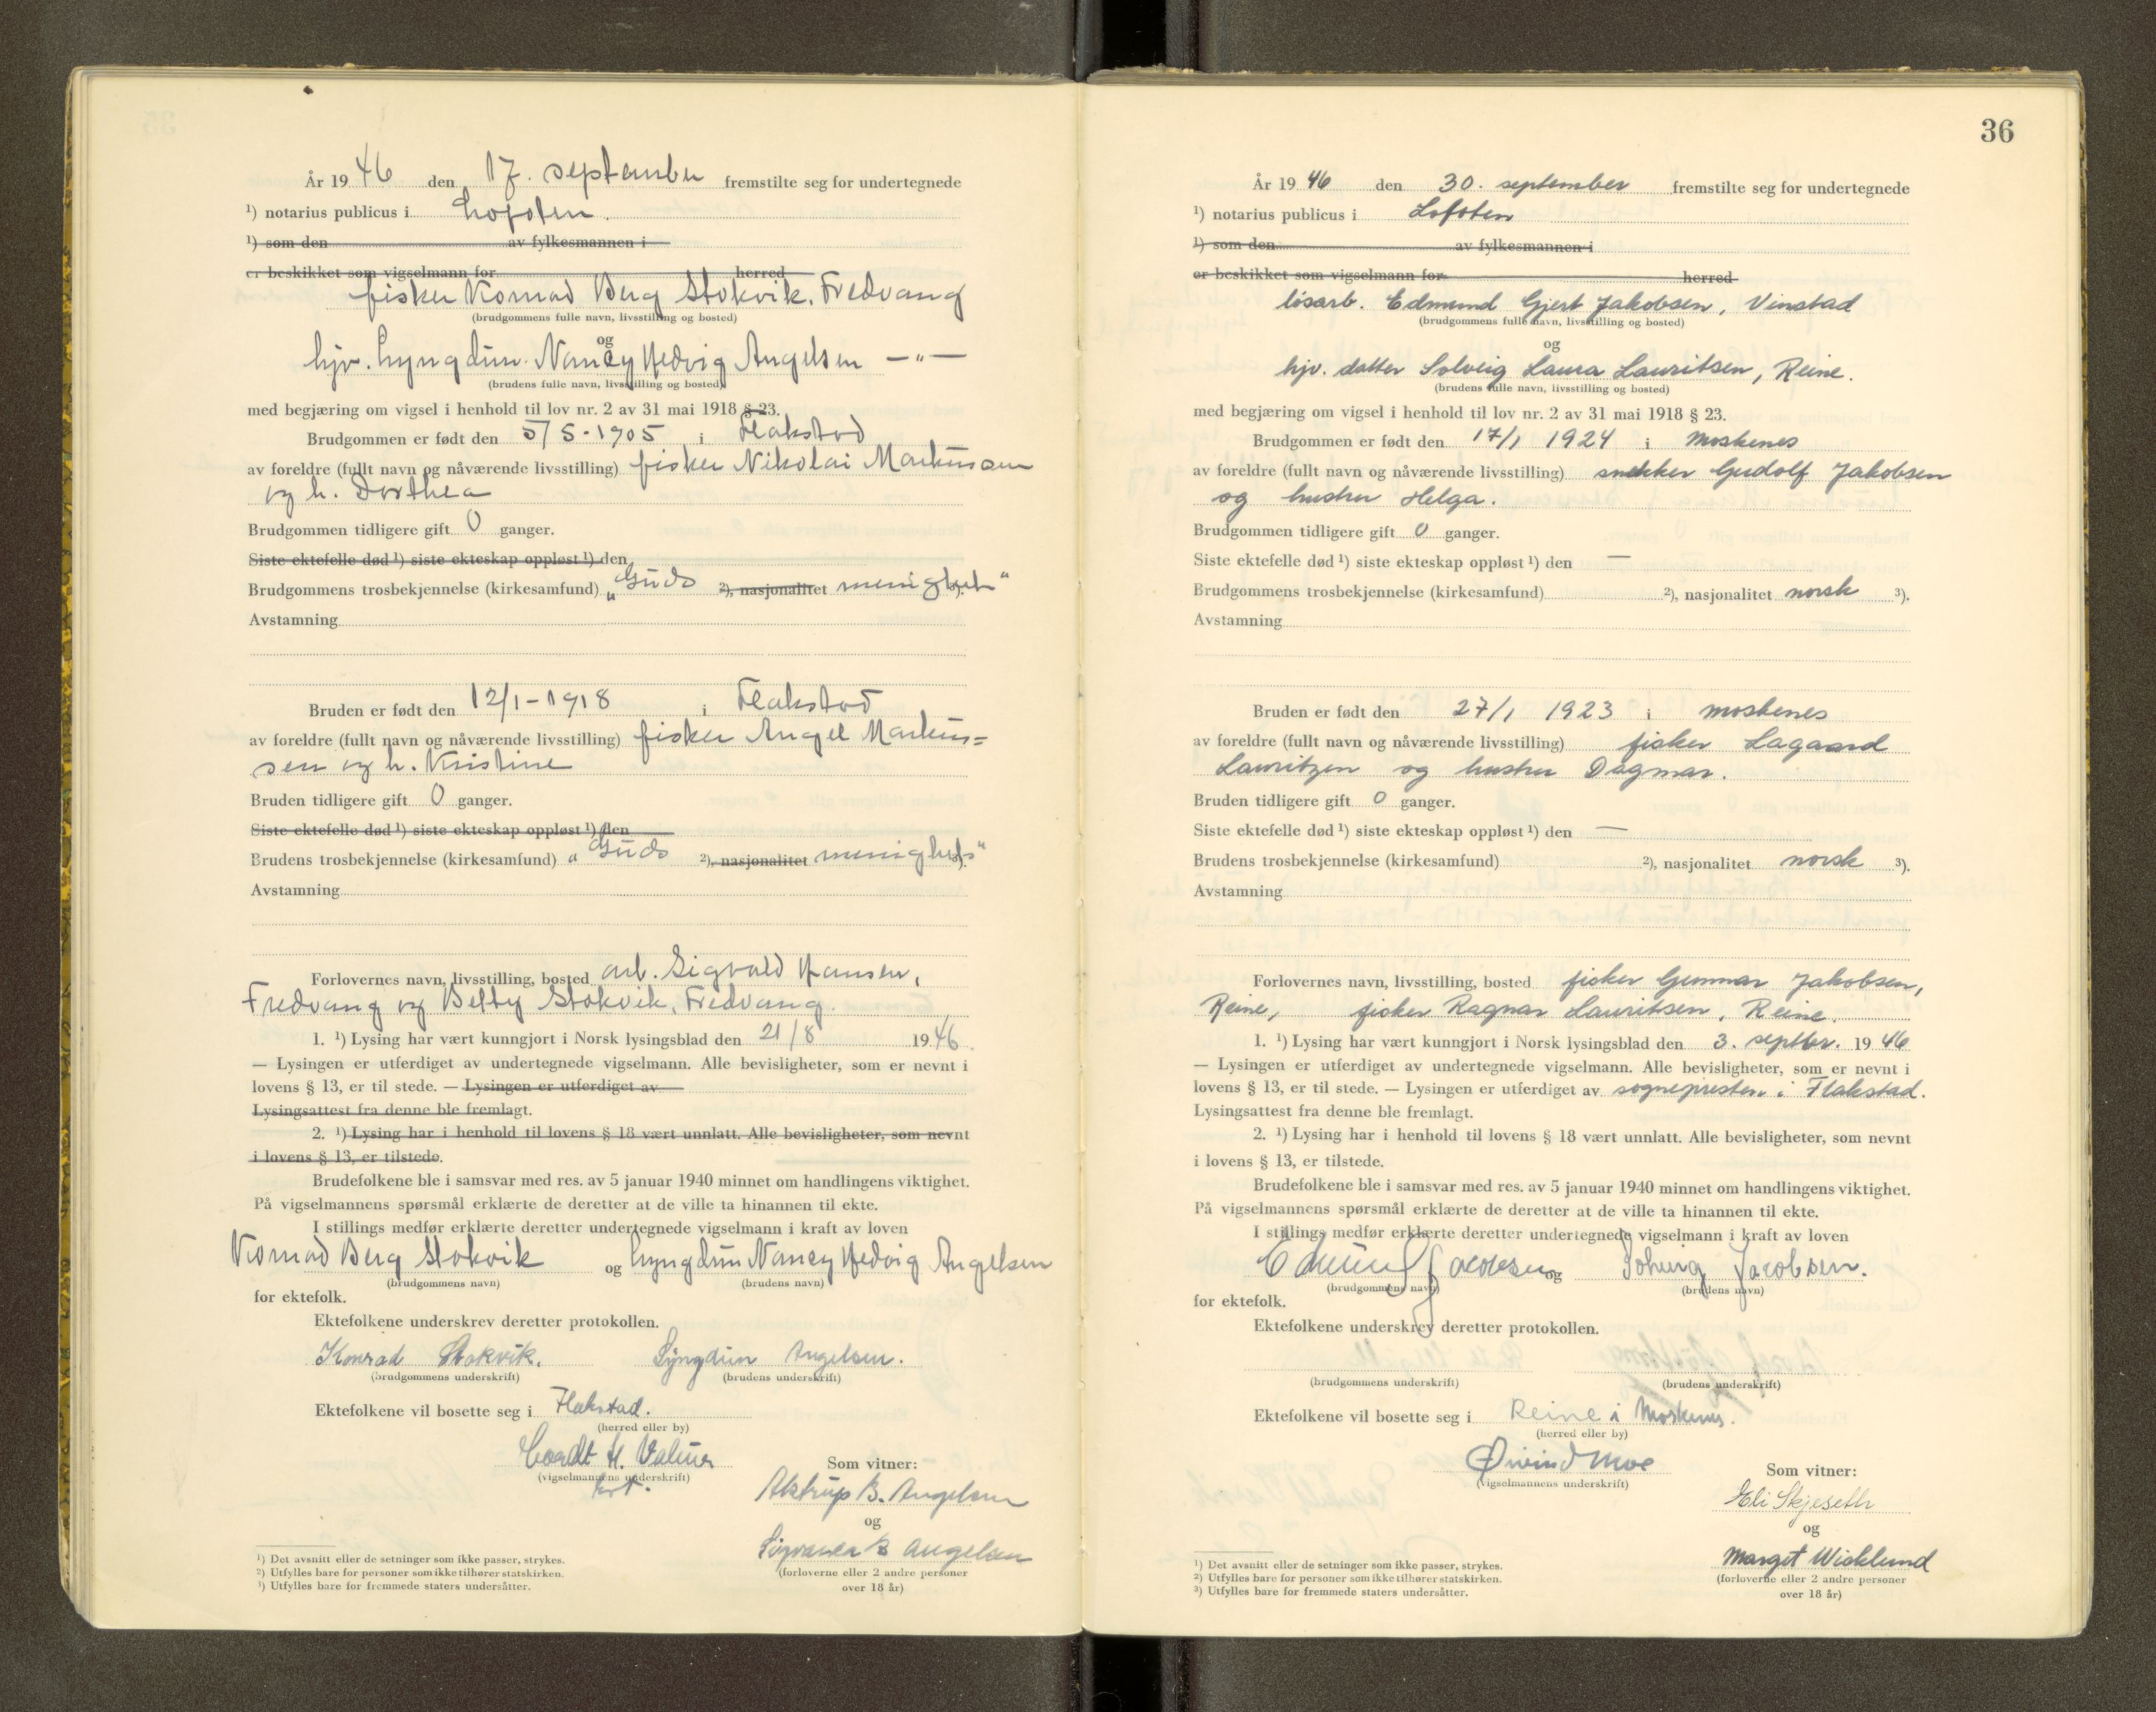 År 1946 den 17. september fremstilte seg for undertegnede
¹) notarius publicus i Lofoten.
¹) som den av fylkesmannen i
er beskikket som vigselmann for herred
fisker Konrad Berg Stokvik, Fredvang
(brudgommens fulle navn, livsstilling og bosted)
og
hjv. Lyngdun Nancy Hedvig Angelsen —"—
(brudens fulle navn, livsstilling og bosted)
med begjæring om vigsel i henhold til lov nr. 2 av 31 mai 1918 § 23.
Brudgommen er født den 5/5-1905 i Flakstad
av foreldre (fullt navn og nåværende livsstilling) fisker Nikolai Markussen
og h. Dorthea
Brudgommen tidligere gift 0 ganger.
Siste ektefelle død ¹) siste ekteskap oppløst ¹) den
Brudgommens trosbekjennelse (kirkesamfund) „Guds ²), nasjonalitet menighet" ³).
Avstamning
Bruden er født den 12/1-1918 i Flakstad
av foreldre (fullt navn og nåværende livsstilling) fisker Angel Markus=
sen og h. Kristine
Bruden tidligere gift 0 ganger.
Siste ektefelle død ¹) siste ekteskap oppløst ¹) den
Brudens trosbekjennelse (kirkesamfund) „Guds ²), nasjonalitet menighet" ³).
Avstamning
Forlovernes navn, livsstilling, bosted arb. Sigvald Hansen,
Fredvang og Betty Stokvik, Fredvang.
1. ¹) Lysing har vært kunngjort i Norsk lysingsblad den 21/8 1946
— Lysingen er utferdiget av undertegnede vigselmann. Alle bevisligheter, som er nevnt i
lovens § 13, er til stede. — Lysingen er utferdiget av
Lysingsattest fra denne ble fremlagt.
2. ¹) Lysing har i henhold til lovens § 18 vært unnlatt. Alle bevisligheter, som nevnt
i lovens § 13, er tilstede.
Brudefolkene ble i samsvar med res. av 5 januar 1940 minnet om handlingens viktighet.
På vigselmannens spørsmål erklærte de deretter at de ville ta hinannen til ekte.
I stillings medfør erklærte deretter undertegnede vigselmann i kraft av loven
Konrad Berg Stokvik og Lyngdun Nancy Hedvig Angelsen
(brudgommens navn) (brudens navn)
for ektefolk.
Ektefolkene underskrev deretter protokollen.
Konrad Stokvik. Lyngdun Angelsen.
(brudgommens underskrift) (brudens underskrift)
Ektefolkene vil bosette seg i Flakstad.
(herred eller by)
Cordt H. Valeur
(vigselmannens underskrift)
kst.
Som vitner:
Alstrup B. Angelsen
og
B Angelsen
(forloverne eller 2 andre personer
over 18 år)
¹) Det avsnitt eller de setninger som ikke passer, strykes.
²) Utfylles bare for personer som ikke tilhører statskirken.
³) Utfylles bare for fremmede staters undersåtter.
36
År 1946 den 30. september fremstilte seg for undertegnede
¹) notarius publicus i Lofoten
¹) som den av fylkesmannen i
er beskikket som vigselmann for herred
løsarb. Edmund Gjert Jakobsen, Vinstad
(brudgommens fulle navn, livsstilling og bosted)
og
hjv. datter Solveig Laura Lauritsen, Reine.
(brudens fulle navn, livsstilling og bosted)
med begjæring om vigsel i henhold til lov nr. 2 av 31 mai 1918 § 23.
Brudgommen er født den 17/1 1924 i Moskenes
av foreldre (fullt navn og nåværende livsstilling) snekker Gudolf Jakobsen
og hustru Helga.
Brudgommen tidligere gift 0 ganger.
Siste ektefelle død ¹) siste ekteskap oppløst ¹) den —
Brudgommens trosbekjennelse (kirkesamfund) ²), nasjonalitet norsk ³).
Avstamning
Bruden er født den 27/1 1923 i Moskenes
av foreldre (fullt navn og nåværende livsstilling) fisker Lagaard
Lauritzen og hustru Dagmar.
Bruden tidligere gift 0 ganger.
Siste ektefelle død ¹) siste ekteskap oppløst ¹) den —
Brudens trosbekjennelse (kirkesamfund) ²), nasjonalitet norsk ³).
Avstamning
Forlovernes navn, livsstilling, bosted fisker Gunnar Jakobsen,
Reine, fisker Ragnar Lauritsen, Reine.
1. ¹) Lysing har vært kunngjort i Norsk lysingsblad den 3. septbr. 1946
— Lysingen er utferdiget av undertegnede vigselmann. Alle bevisligheter, som er nevnt i
lovens § 13, er til stede. — Lysingen er utferdiget av sognepresten i Flakstad.
Lysingsattest fra denne ble fremlagt.
2. ¹) Lysing har i henhold til lovens § 18 vært unnlatt. Alle bevisligheter, som nevnt
i lovens § 13, er tilstede.
Brudefolkene ble i samsvar med res. av 5 januar 1940 minnet om handlingens viktighet.
På vigselmannens spørsmål erklærte de deretter at de ville ta hinannen til ekte.
I stillings medfør erklærte deretter undertegnede vigselmann i kraft av loven
Edmund Jacobsen og Solveig Jacobsen.
(brudgommens navn) (brudens navn)
for ektefolk.
Ektefolkene underskrev deretter protokollen.
(brudgommens underskrift) (brudens underskrift)
Ektefolkene vil bosette seg i Reine i Moskenes.
(herred eller by)
Øivind Moe
(vigselmannens underskrift)
Som vitner:
Eli Skjeseth
og
Margit Wicklund
(forloverne eller 2 andre personer
over 18 år)
¹) Det avsnitt eller de setninger som ikke passer, strykes.
²) Utfylles bare for personer som ikke tilhører statskirken.
³) Utfylles bare for fremmede staters undersåtter.